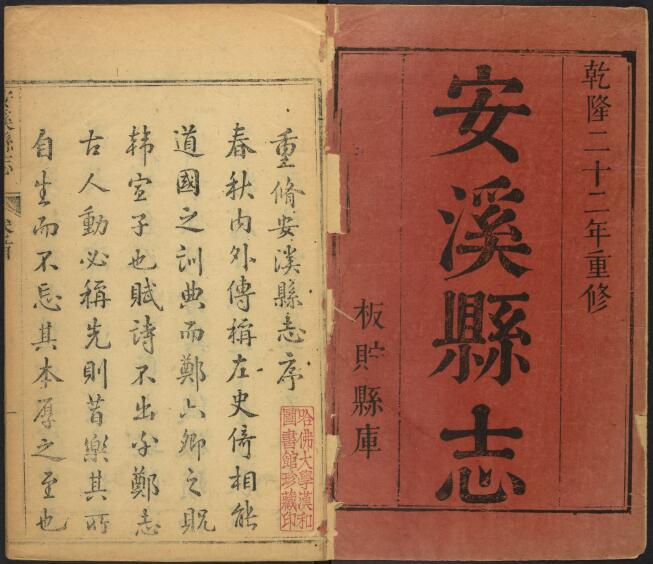 乾隆二十二年重修
安溪縣志
板貯縣庫
重脩安溪縣志序
春秋內外傳稱左史倚相能
道國之訓典而鄭六卿之貺
韓宣子也賦詩不出乎鄭志
古人動必稱先則昔樂其所
自生而不忘其本厚之至也
哈佛大學漢和
圖書館珍藏印
安溪縣志